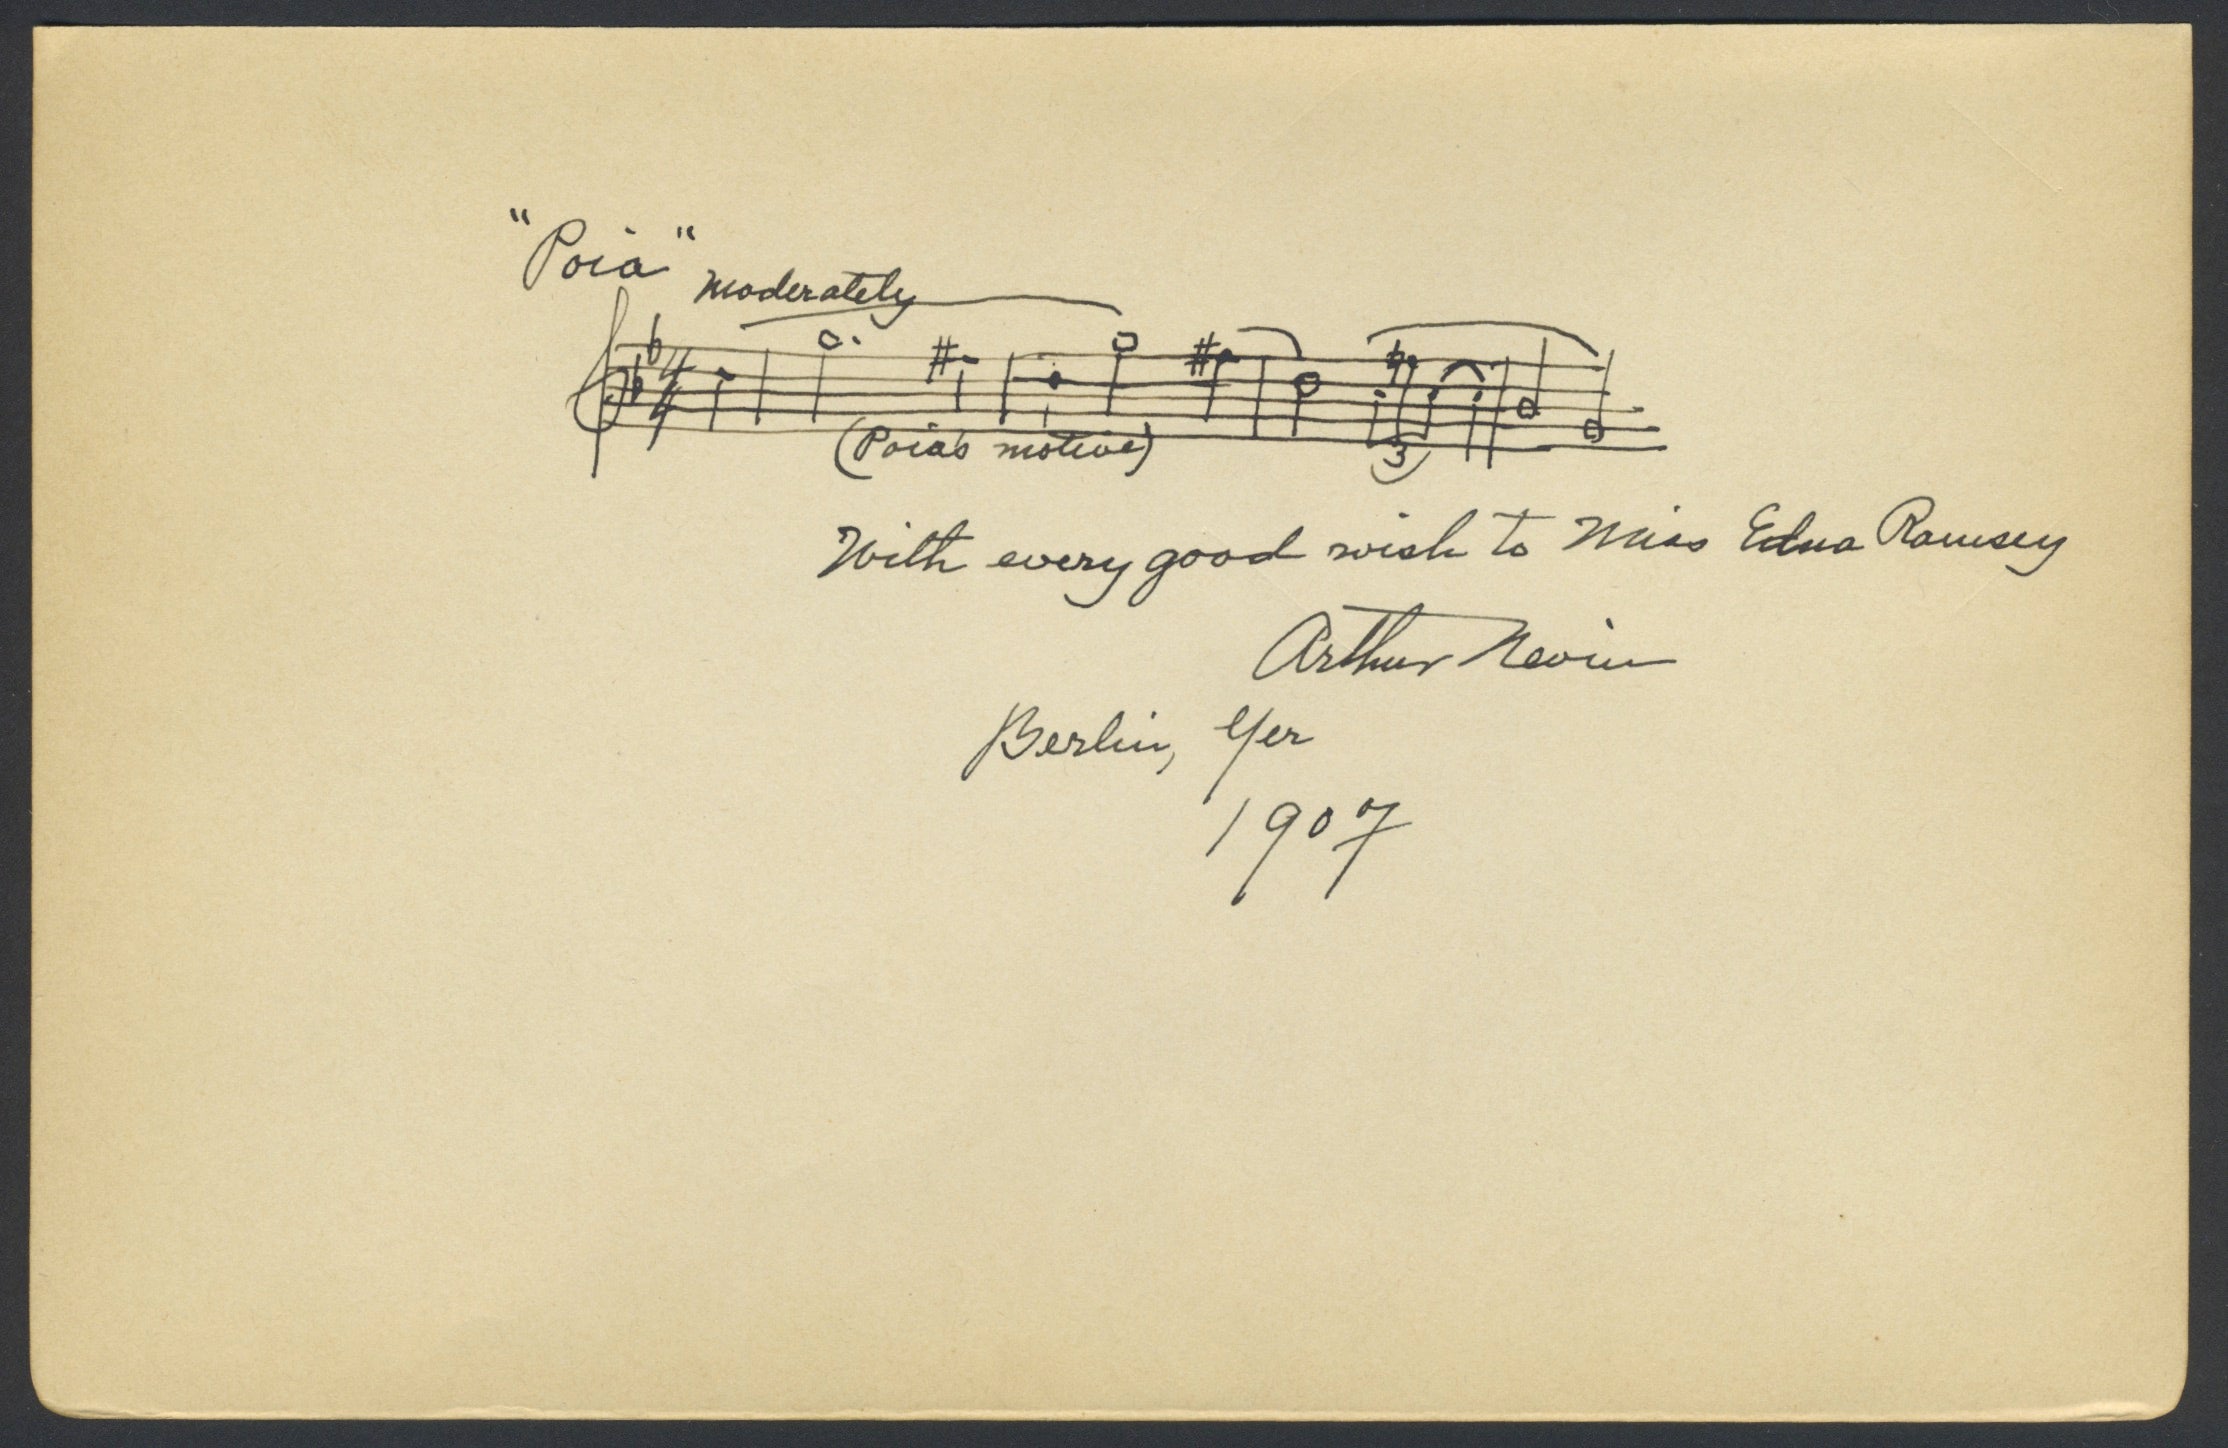 "Poia"
moderately
4
4
(Poia's motive)
3
With every good wish to Miss Edna Ramsey
Arthur Nevin
Berlin, Ger
1907